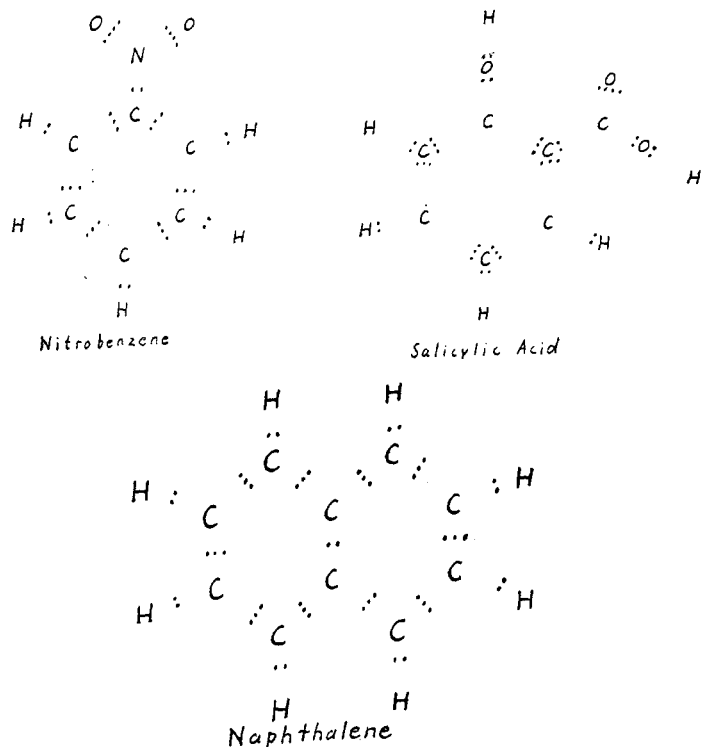 O O
N
C
H C C H
H C C H
C
H
Nitrobenzene
H
O O
C C
H C C O
H
H C C H
C
H
Salicylic Acid
H H
C C
H C C C H
H C C C H
C C
H H
Naphthalene